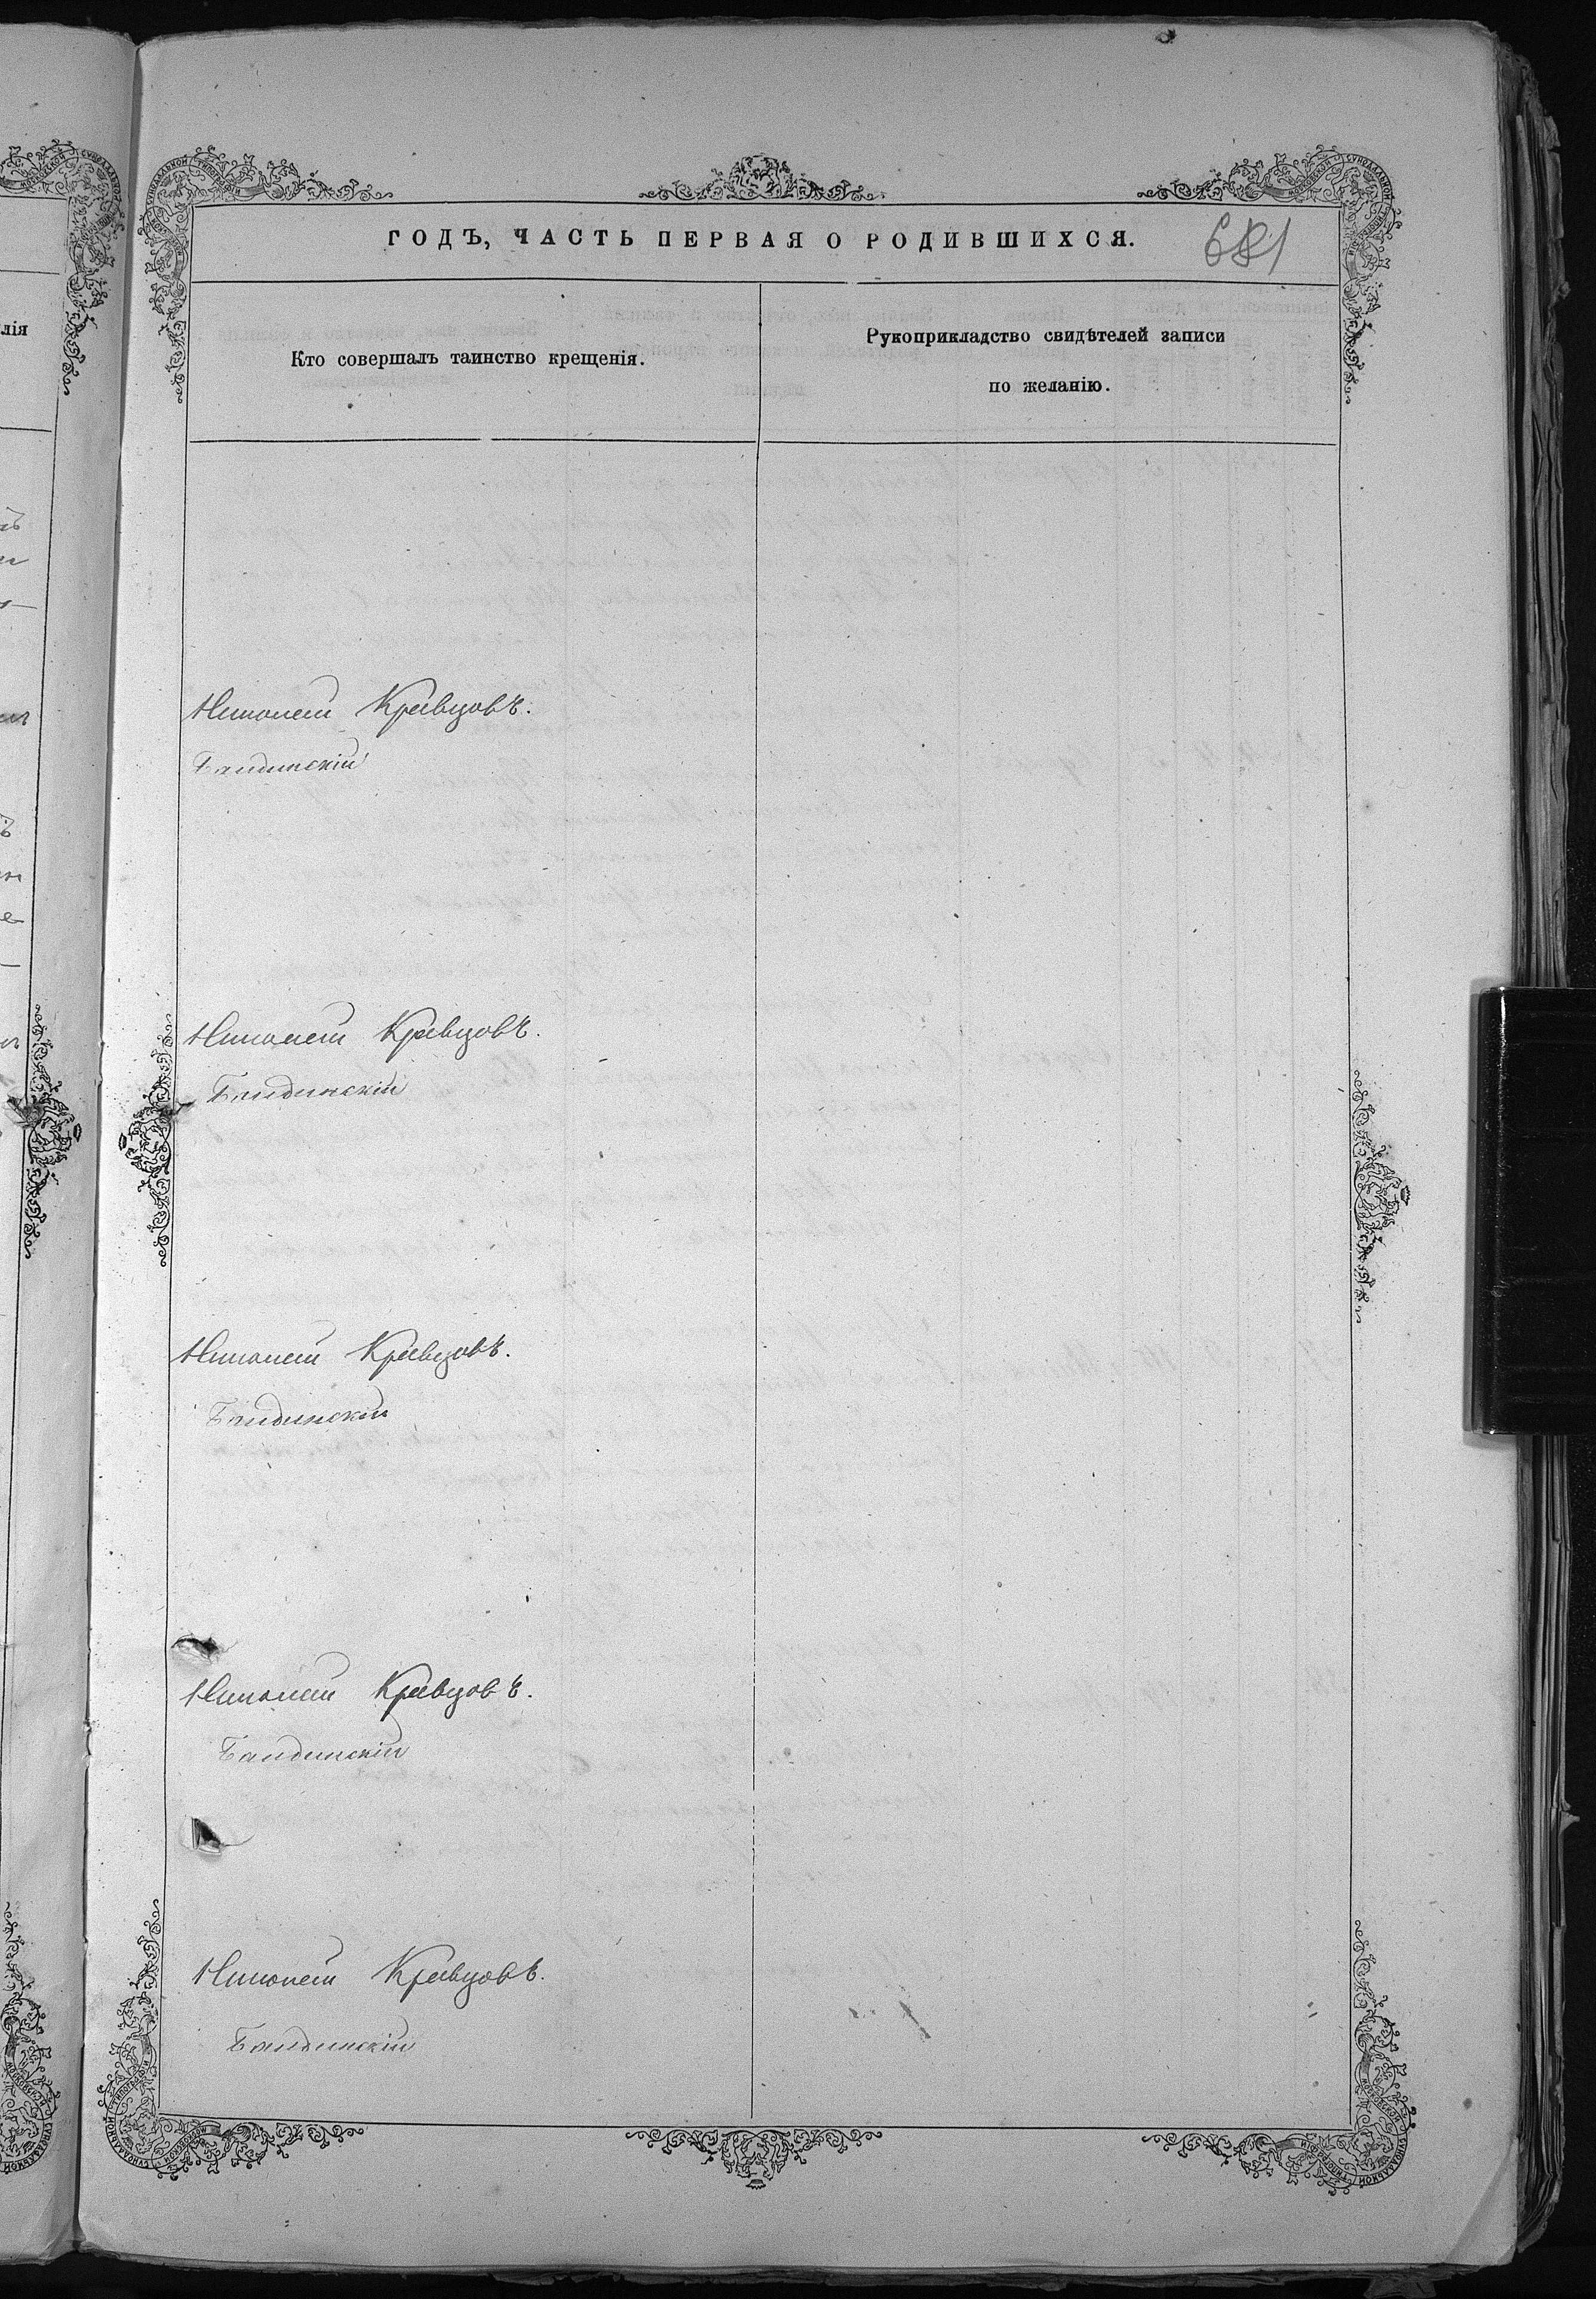 ГОДЪ, ЧАСТЬ ПЕРВАЯ О РОДИВШИХСЯ.
681
Кто совершалъ таинство крещенія.
Рукоприкладство свидѣтелей записи
по желанію.
Николай Кравцовъ.
Бандинскій
Николай Кравцовъ.
Бандинскій
Николай Кравцовъ.
Бандинскій
Николай Кравцовъ.
Бандинскій
Николай Кравцовъ.
Бандинскій